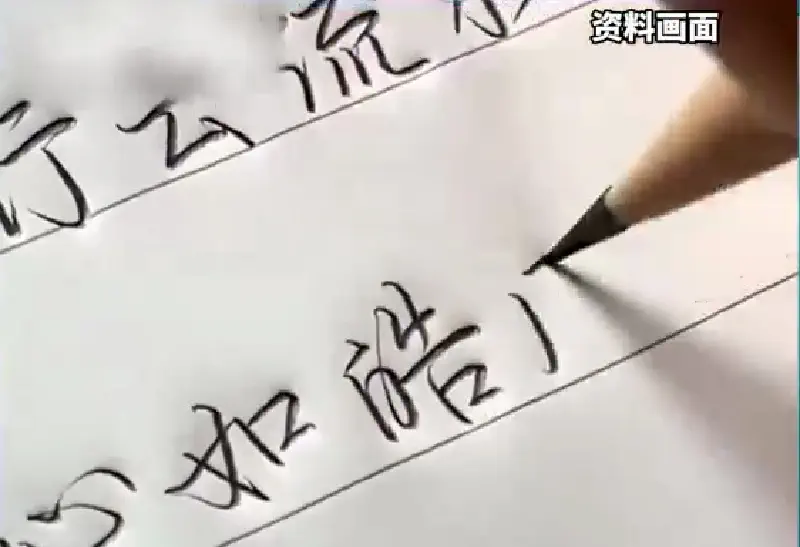 资料画面
行云流
心如皓